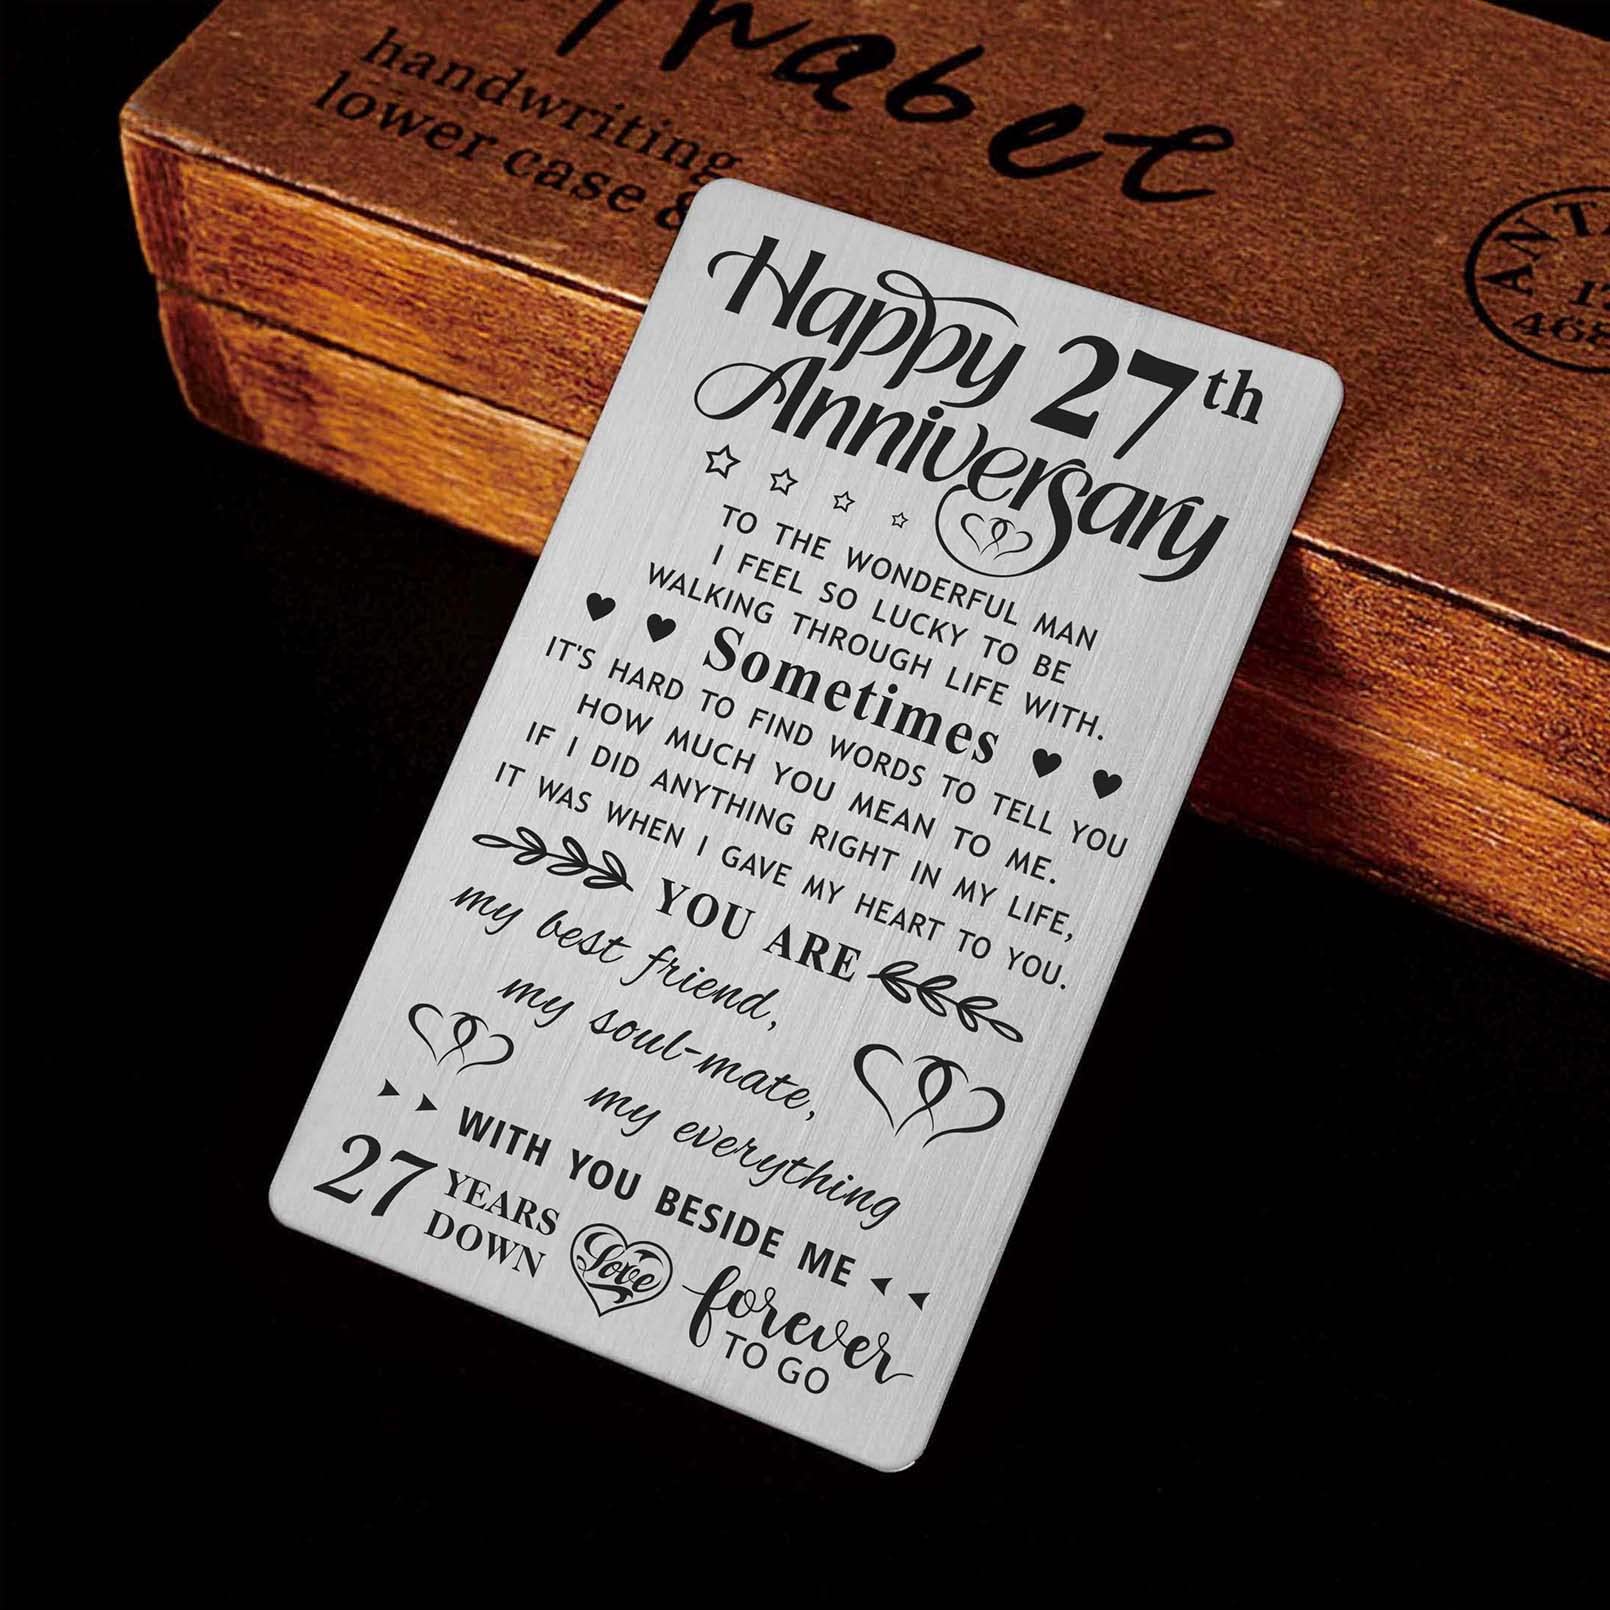 handwriting
lower case &
Happy 27th
Anniversary
TO THE WONDERFUL MAN
I FEEL SO LUCKY TO BE
WALKING THROUGH LIFE WITH.
Sometimes
IT'S HARD TO FIND WORDS TO TELL YOU
HOW MUCH YOU MEAN TO ME.
IF I DID ANYTHING RIGHT IN MY LIFE,
IT WAS WHEN I GAVE MY HEART TO YOU.
YOU ARE
my best friend,
my soul-mate,
my everything
WITH YOU BESIDE ME
27 YEARS
DOWN
Love
forever
TO GO